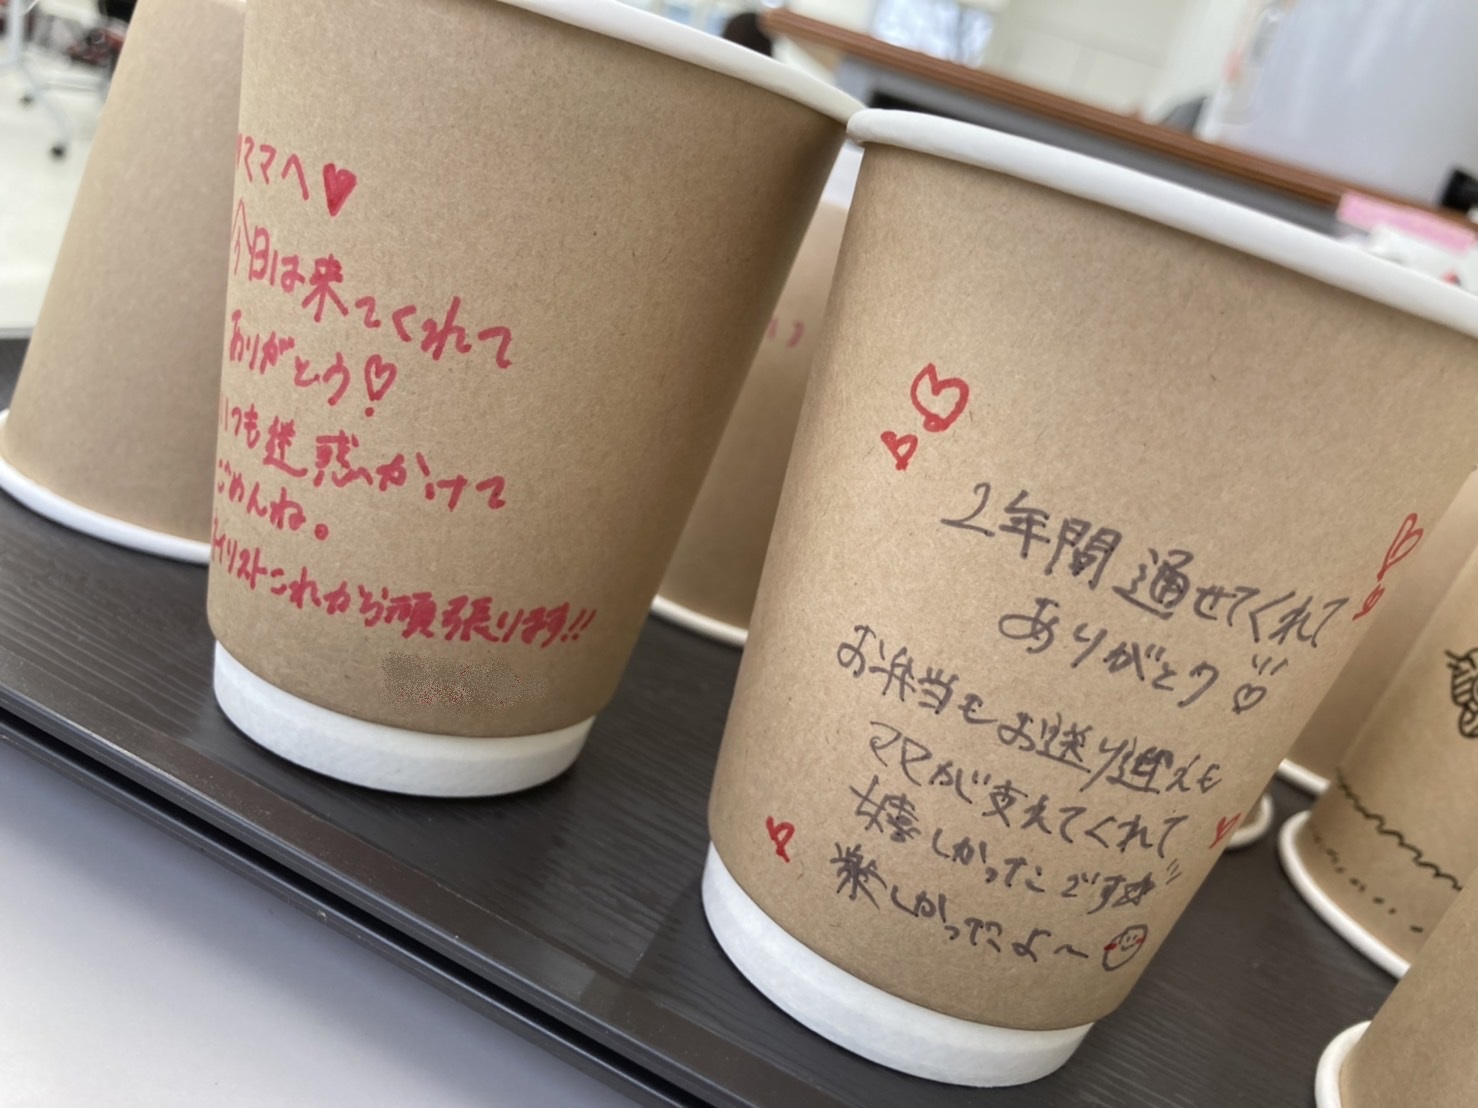 ママへ♥
今日は来てくれて
ありがとう♡
いつも迷惑かけて
ごめんね。
ネイリストこれから頑張ります!!
2年間通せてくれて
ありがとう♡
お弁当もお送り迎えも
ママが支えてくれて
嬉しかったです
楽しかったよ〜